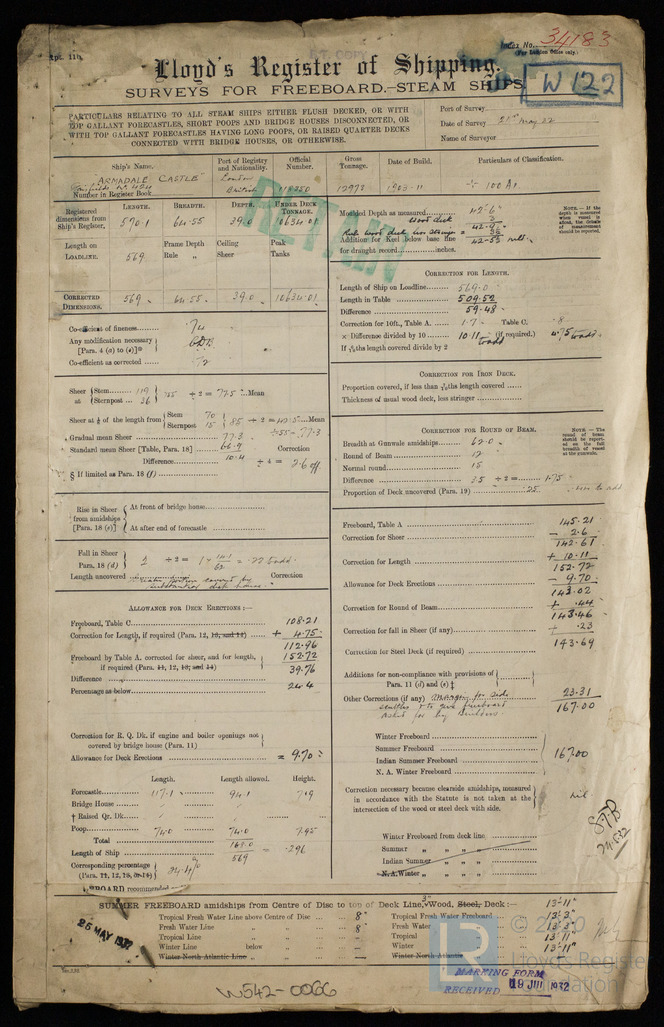 Rpt. 11b.
Index No. 34183
(For London Office only.)
Lloyd's Register of Shipping.
W 122
SURVEYS FOR FREEBOARD.—STEAM SHIPS
PARTICULARS RELATING TO ALL STEAM SHIPS EITHER FLUSH DECKED, OR WITH
TOP GALLANT FORECASTLES, SHORT POOPS AND BRIDGE HOUSES DISCONNECTED, OR
WITH TOP GALLANT FORECASTLES HAVING LONG POOPS, OR RAISED QUARTER DECKS
CONNECTED WITH BRIDGE HOUSES, OR OTHERWISE.
Port of Survey
Date of Survey 21st May 32
Name of Surveyor
Ship's Name. Port of Registry and Nationality. Official Number. Gross Tonnage. Date of Build. Particulars of Classification.
"ARMADALE CASTLE" London
British 118350 12973 1903-11 100 A1
Number in Register Book
RETAIN
Registered dimensions from Ship's Register. LENGTH. BREADTH. DEPTH. UNDER DECK TONNAGE.
570.1 64.55 39.0 10634.01
Length on LOADLINE. Frame Depth Ceiling Peak
Rule " Sheer Tanks
569
CORRECTED DIMENSIONS. 569 64.55 39.0 10634.01
Co-efficient of fineness .74
Any modification necessary
[Para. 4 (a) to (e)]*
Co-efficient as corrected .72
Sheer at Stem 119
Sternpost 36 155 ÷ 2 = 77.5 Mean
Sheer at ⅛ of the length from Stem 70
Sternpost 15 85 ÷ 2 = 42.5 Mean
÷ .55 = 77.3
Gradual mean Sheer 77.3
Standard mean Sheer [Table, Para. 18] 66.9 Correction
Difference 10.4 ÷ 4 = 2.6 off
§ If limited as Para. 18 (f)
Rise in Sheer from amidships [Para. 18 (e)]
At front of bridge house
At after end of forecastle
Fall in Sheer
Para. 18 (d) 2 ÷ 2 = = .23 to add
Length uncovered Correction
ALLOWANCE FOR DECK ERECTIONS:—
Freeboard, Table C 108.21
Correction for Length, if required (Para. 12, 13, and 14) + 4.75
112.96
Freeboard by Table A. corrected for sheer, and for length,
if required (Para. 11, 12, 13, and 14) 152.72
Difference 39.76
Percentage as below 24.4
Correction for R. Q. Dk. if engine and boiler openings not
covered by bridge house (Para. 11)
Allowance for Deck Erections = 9.70
Length. Length allowed. Height.
Forecastle 117.1 94.1 7.9
Bridge House
† Raised Qr. Dk.
Poop 74.0 74.0 7.95
Total 168.0
Length of Ship 569 = .296
Corresponding percentage
(Para. 11, 12, 13, or 14) 24.4%
FREEBOARD recommended
Moulded Depth as measured
Wood deck
Addition for Keel below base line
for draught record inches.
NOTE.—If the depth is measured when vessel is afloat, the details of measurement should be reported.
CORRECTION FOR LENGTH.
Length of Ship on Loadline 569.0
Length in Table 509.52
Difference 59.48
Correction for 10ft., Table A. 1.7 Table C. .8
× Difference divided by 10 10.11 (if required.) 4.75 to add
to add
If 6/10ths length covered divide by 2
CORRECTION FOR IRON DECK.
Proportion covered, if less than 7/10ths length covered
Thickness of usual wood deck, less stringer
CORRECTION FOR ROUND OF BEAM.
Breadth at Gunwale amidships 62.0
Round of Beam 12
Normal round 15
Difference 3.5 ÷ 2 = 1.75
Proportion of Deck uncovered (Para. 19) .25 to add
NOTE.—The round of beam should be reported on the full breadth of vessel at the gunwale.
Freeboard, Table A 145.21
Correction for Sheer − 2.6
142.61
Correction for Length + 10.11
152.72
Allowance for Deck Erections − 9.70
143.02
Correction for Round of Beam + .44
143.46
Correction for fall in Sheer (if any) + .23
143.69
Correction for Steel Deck (if required)
Additions for non-compliance with provisions of
Para. 11 (d) and (e) ‡
Other Corrections (if any) for side 23.31
scuttles & to give freeboard 167.00
asked for by builders
Winter Freeboard
Summer Freeboard 167.00
Indian Summer Freeboard
N. A. Winter Freeboard
Correction necessary because clearside amidships, measured
in accordance with the Statute is not taken at the nil.
intersection of the wood or steel deck with side.
Winter Freeboard from deck line
Summer " " " "
Indian Summer " " " "
N. A. Winter " " " "
24.5.32
SUMMER FREEBOARD amidships from Centre of Disc to top of Deck Line, 3" Wood, Steel, Deck:— 13'-11"
Tropical Fresh Water Line above Centre of Disc 8" Tropical Fresh Water Freeboard 13'-3"
Fresh Water Line " " 8 Fresh Water " 13'-3"
Tropical Line " " — Tropical " 13'-11"
Winter Line below " " — Winter " 13'-11"
Winter North Atlantic Line " " — Winter North Atlantic "
25 MAY 1932
MARKING FORM
RECEIVED 19 JUL 1932
W542-0066
© 2020
Lloyd's Register
Foundation
LR